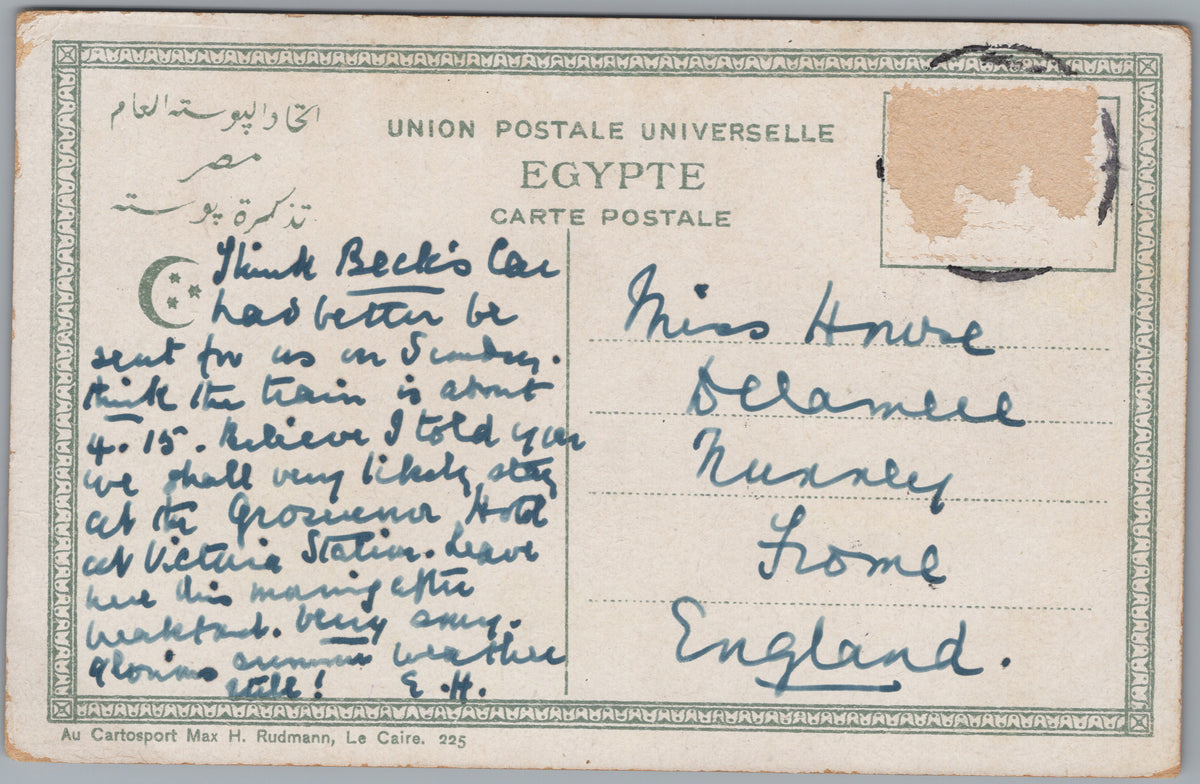 اتحاد البوسته العام
مصر
تذكرة بوسته
UNION POSTALE UNIVERSELLE
EGYPTE
CARTE POSTALE
Think Beck's Car
had better be
sent for us on Sunday.
think the train is about
4.15. Believe I told you
we shall very likely stay
at the Grosvenor Hotel
at Victoria Station. Leave
here this morning after
breakfast. Very sorry.
Glorious summer weather
still! E.H.
Miss House
Delamere
Nunney
Frome
England.
Au Cartosport Max H. Rudmann, Le Caire. 225